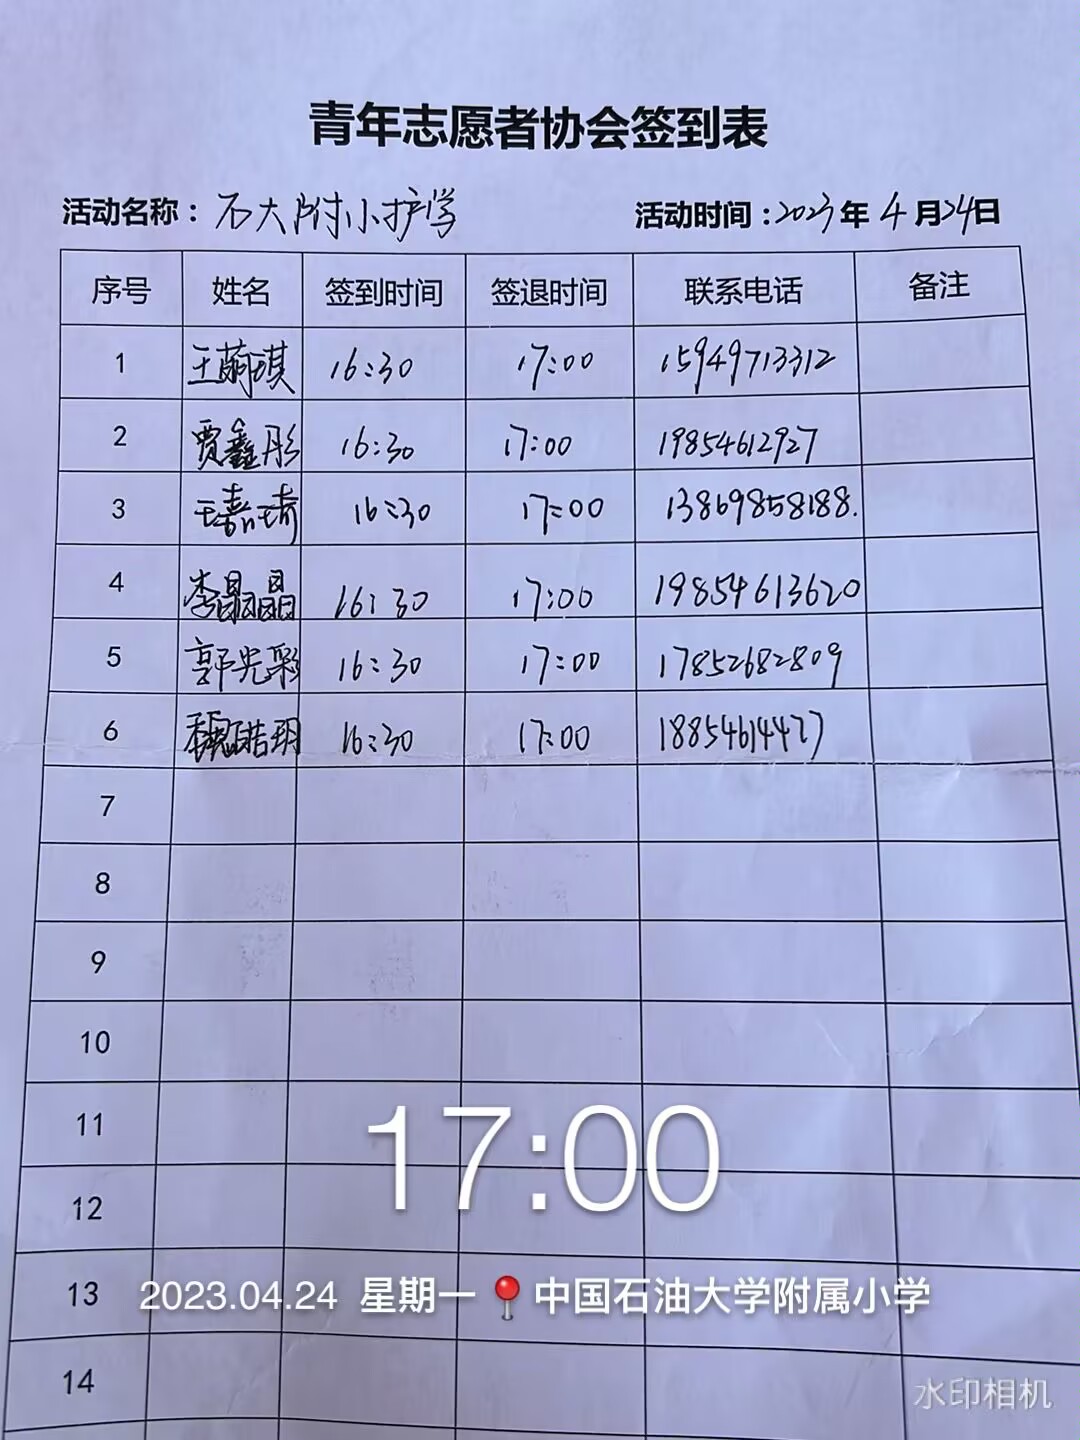 青年志愿者协会签到表
活动名称：石大附小护学 活动时间：2023年4月24日
序号 姓名 签到时间 签退时间 联系电话 备注
1 王萌琪 16:30 17:00 15949713312
2 贾鑫彤 16:30 17:00 19854612927
3 王嘉琦 16:30 17:00 13869858188.
4 李晶晶 16:30 17:00 19854613620
5 郭光彩 16:30 17:00 17852682809
6 魏皓玥 16:30 17:00 18854614427
7
8
9
10
11
17:00
12
13
2023.04.24 星期一 中国石油大学附属小学
14
水印相机